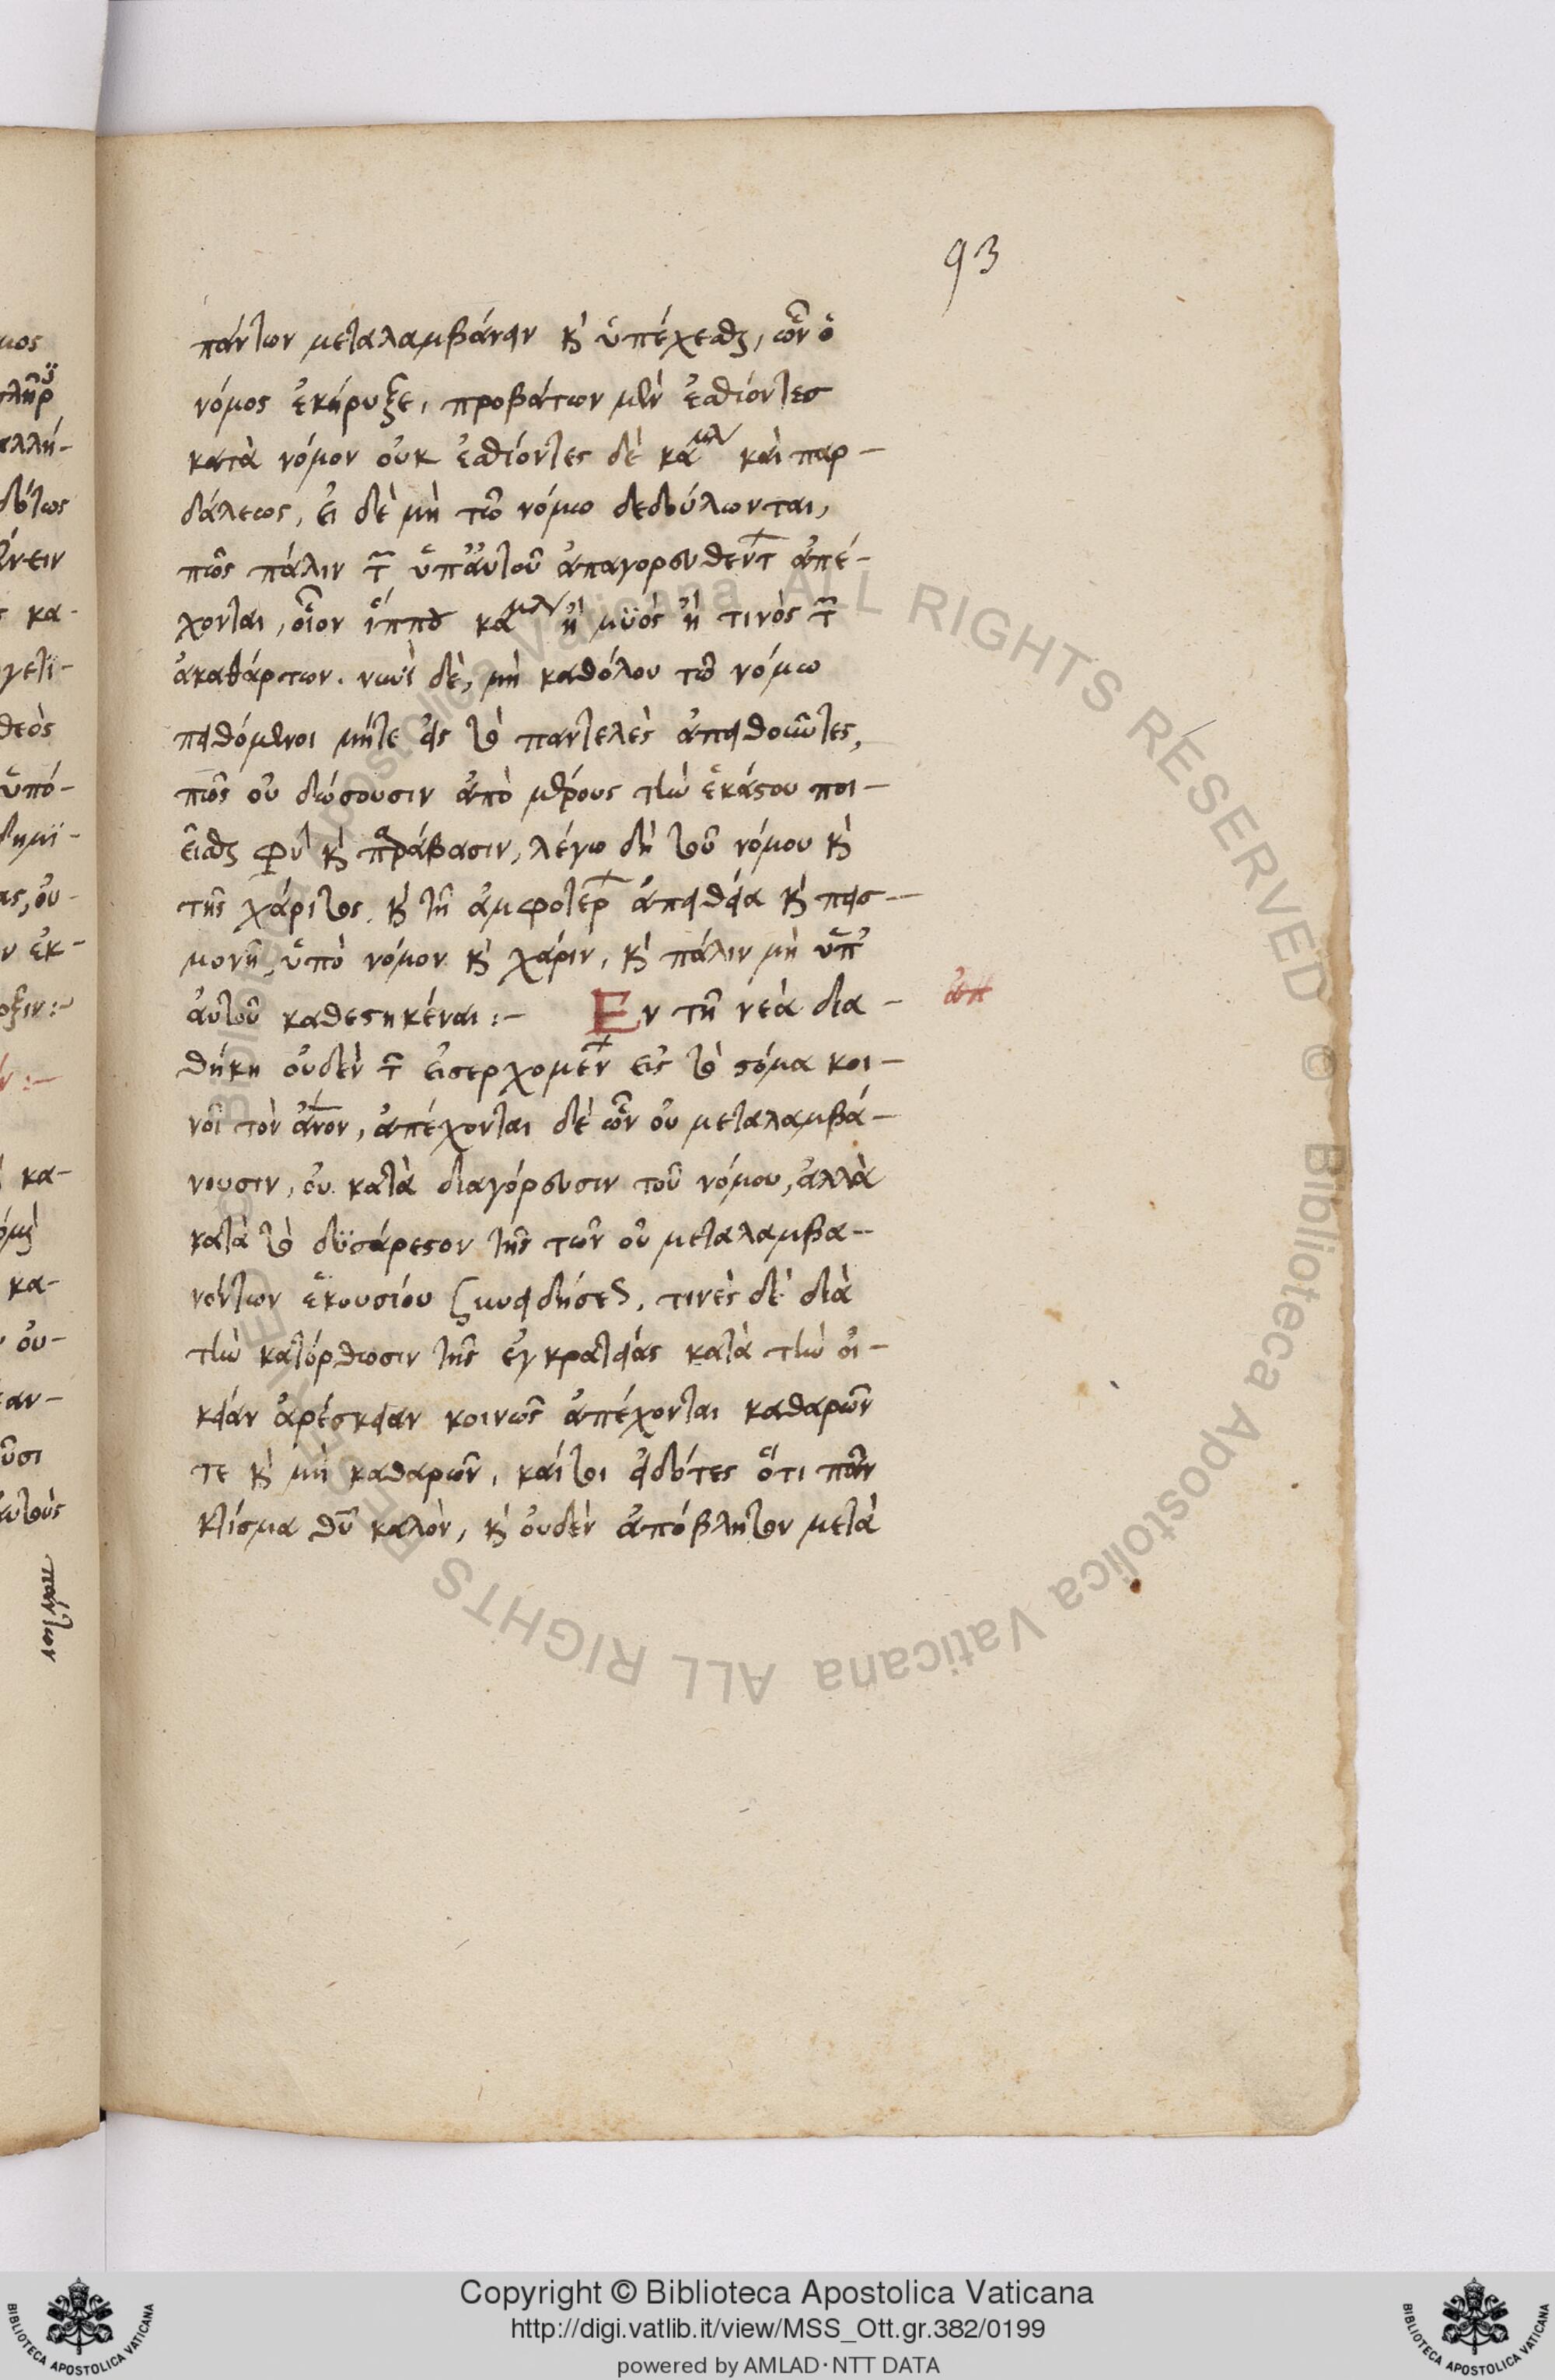 93
πάντων μεταλαμβάνειν κ ὑπέχεσθαι, ὧν ὁ
νόμος ἐκήρυξε, προβάτων μὲν ἐσθίοντες
κατὰ νόμον οὐκ ἐσθίοντες δὲ καμλ καὶ παρ-
δάλεως, εἰ δὲ μὴ τῶ νόμω δεδούλωνται,
πῶς πάλιν τ ὑπ' αὐτοῦ ἀπαγορευθεντ ἀπέ-
χονται, οἷον ἵππου καμλ ἢ μυὸς ἤ τινὸς τ
ἀκαθάρτων. νυνὶ δὲ, μὴ καθόλου τῶ νόμω
πειθόμενοι μήτε εἰς τὸ παντελὲς ἀπειθοῦντες,
πῶς οὐ δώσουσιν ἀπὸ μέρους τὴν ἑκάστου ποι-
εῖσθαι κ παράβασιν, λέγω δὴ τοῦ νόμου κ
τῆς χάριτος. κ τῆ ἀμφοτερ ἀπειθεία κ πεισ-
μονῆ, ὑπὸ νόμον κ χάριν, κ πάλιν μὴ ὑπ'
αὐτοῦ καθεστηκέναι :- Ἐν τῆ νέα δια-
θήκη οὐδὲν τ εἰσερχομεν εἰς τὸ στόμα κοι-
νοῖ τὸν ἄνον, ἀπέχονται δὲ ὧν οὐ μεταλαμβά-
νουσιν, οὐ κατὰ διαγόρευσιν τοῦ νόμου, ἀλλὰ
κατὰ τὸ δυσάρεστον τῆς τῶν οὐ μεταλαμβα-
νόντων ἑκουσίου συνειδήσεως, τινὲς δὲ διὰ
τὴν κατόρθωσιν τῆς ἐγκρατείας κατὰ τὴν οἰ-
κείαν ἀρέσκειαν κοινῶς ἀπέχονται καθαρῶν
τε κ μὴ καθαρῶν, καίτοι εἰδότες ὅτι πᾶν
κτίσμα θυ καλὸν, κ οὐδὲν ἀπόβλητον μετὰ
πάντων
Copyright © Biblioteca Apostolica Vaticana
http://digi.vatlib.it/view/MSS_Ott.gr.382/0199
powered by AMLAD·NTT DATA